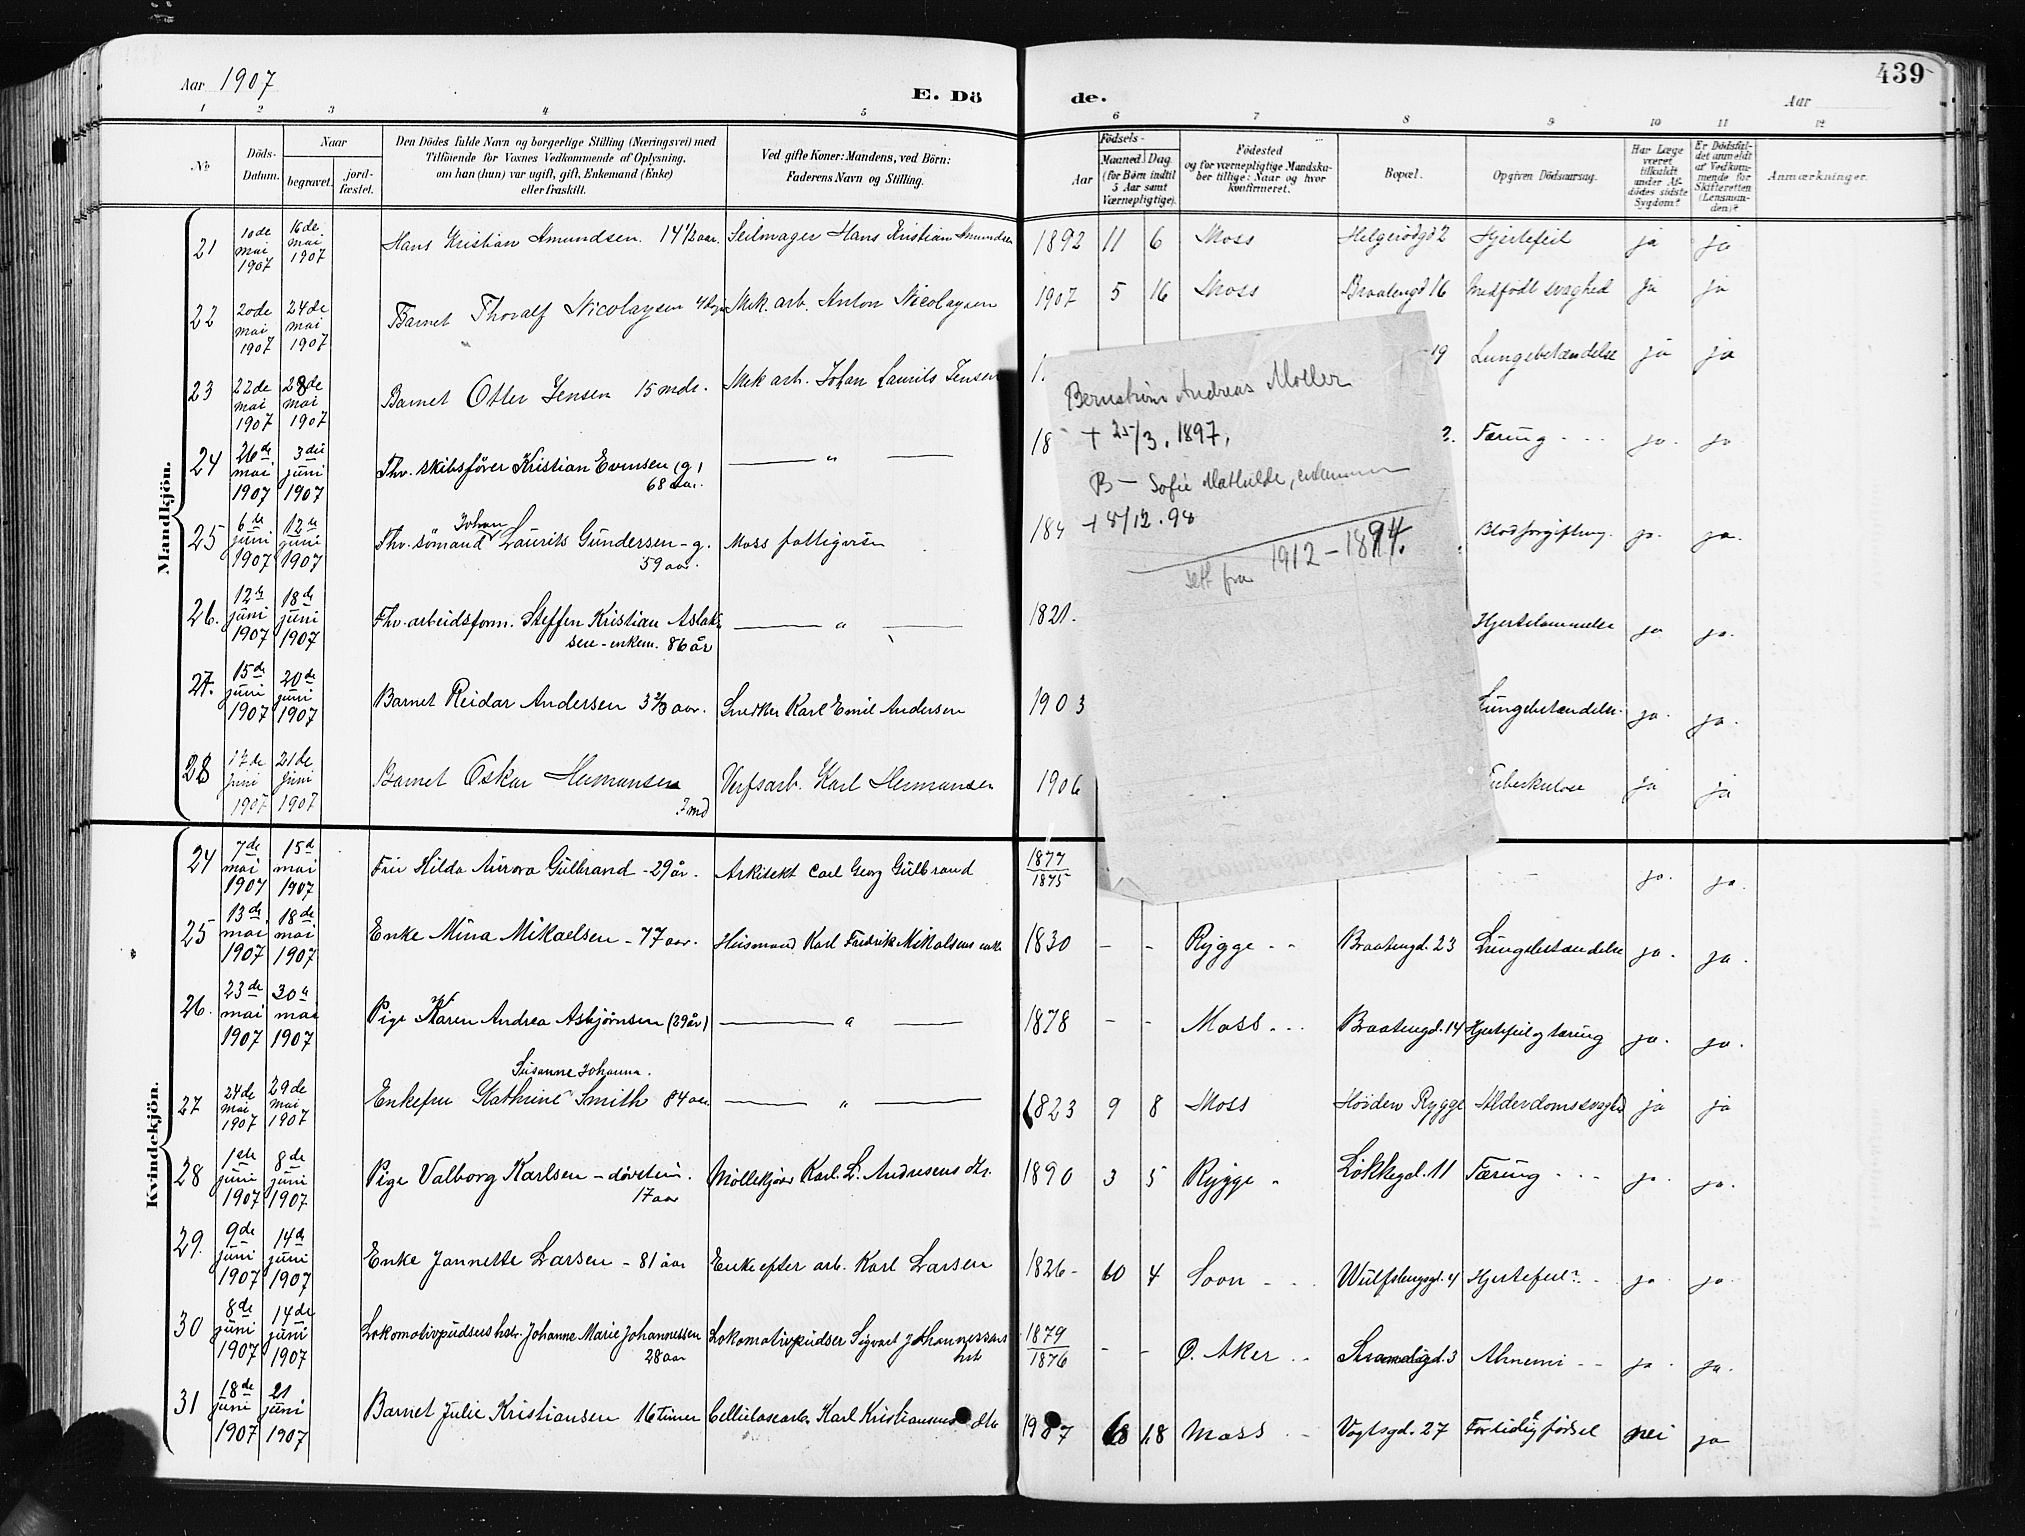 Aar 1907
E. Dö de.
439
Aar
1 2 3 4 5 6 7 8 9 10 11 12
No
Döds-Datum.
Naar
begravet.
jord-fæstet.
Den Dödes fulde Navn og borgerlige Stilling (Næringsvei) med
Tilföiende for Voxnes Vedkommende af Oplysning,
om han (hun) var ugift, gift, Enkemand (Enke)
eller fraskilt.
Ved gifte Koner: Mandens, ved Börn:
Faderens Navn og Stilling.
Födsels-
Aar
Maaned Dag
(for Börn indtil
5 Aar samt
Værnepligtige).
Födested
og for værnepligtige Mandska-
ber tillige: Naar og hvor
konfirmeret.
Bopæl.
Opgiven Dödsaarsag.
Har Læge
været
tilkaldt
under Af-
dödes sidste
Sygdom?
Er Dödsfal-
det anmeldt
af Vedkom-
mende for
Skifteretten
(Lensman-
den)?
Anmærkninger.
Mandkjön.
21 10de mai 1907 16de mai 1907 Hans Kristian Amundsen. 14 1/2 aar. Seilmager Hans Kristian Amundsen 1892 11 6 Moss Helgerödgd 2 Hjertefeil ja ja
22 20de mai 1907 24de mai 1907 Barnet Thoralf Nicolaysen 4 dage Mek. arb. Anton Nicolaysen 1907 5 16 Moss Braatengd 16 Medfødt svaghed ja ja
23 22de mai 1907 28de mai 1907 Barnet Otter Jensen 15 mdr. Mek arb. Johan Laurits Jensen 19 Lungebetændelse ja ja
24 26de mai 1907 3die juni 1907 Thv. skibsfører Kristian Evensen (g) 68 aar. — " — 18 Tæring - - - ja. ja
25 6te juni 1907 12te juni 1907 Thv. sømand Johan Laurits Gundersen - g. 59 aar. Moss fattigvæsen 184 Blodforgiftning. ja. ja.
26. 12te juni 1907 18de juni 1907 Thv. arbeidsform. Steffen Kristian Aslaksen - enkem. 86 år — " — 1821. Hjertelammelse ja ja.
27. 15de juni 1907 20de juni 1907 Barnet Reidar Andersen 3 2/3 aar. Snedker Karl Emil Andersen 1903 Lungebetændelse. ja. ja.
28 17de juni 1907 21de juni 1907 Barnet Oskar Hermansen 7 md Verfsarb. Karl Hermansen 1906 Tuberkulose ja ja
Bernstrøm Andreas Moller
+ 25/3. 1897,
B — Sofie Mathilde,
+ 8/12. 98
sett fra 1912 - 1894.
Kvindekjön.
24 7de mai 1907 15de mai 1907 Fru Hilda Aurora Gulbrand - 29 år. Arkitekt Carl Georg Gulbrand 1877 1875 ja. ja.
25 13de mai 1907 18de mai 1907 Enke Mina Mikaelsen - 77 aar. Husmand Karl Fredrik Mikalsens enke 1830 - - Rygge - - Braatengd. 23 Lungebetændelse ja. ja.
26. 23de mai 1907 30te mai 1907 Pige Karen Andrea Asbjørnsen (29 år) — " — 1878 - - Moss - - - Braatengd. 14 Hjertefeil og tæring ja. ja.
27 24de mai 1907 29de mai 1907 Enkefru Kathrine Susanne Johanna. Smith 84 aar — " — 1823 9 8 Moss Høiden Rygge Alderdomssvaghed ja ja
28 1ste juni 1907 8de juni 1907 Pige Valborg Karlsen - døvstum. 17 aar Møllekjører Karl. L. Andresens dtr. 1890 3 5 Rygge - Løkkegd. 11 Tæring - - - ja. ja.
29. 9de juni 1907 14de juni 1907 Enke Jannette Larsen - 81 aar Enke efter arb. Karl Larsen 1826 - 10 4 Soon - - Wulfsbergsgd. 4 Hjertefeil - - ja. ja.
30 8de juni 1907 14de juni 1907 Lokomotivpudsers hstr. Johanne Marie Johannessen 28 aar Lokomotivpudser Sigvart Johannessens hst 1879 1876 - - Ø. Aker - - Strandgd. 3 Alnemi - - ja. ja.
31 18de juni 1907 21 juni 1907 Barnet Julie Kristiansen 16 timer Cellulosearb. Karl Kristiansens dtr 1907 6 18 Moss - Vogtsgd. 27 For tidlig fødsel nei ja